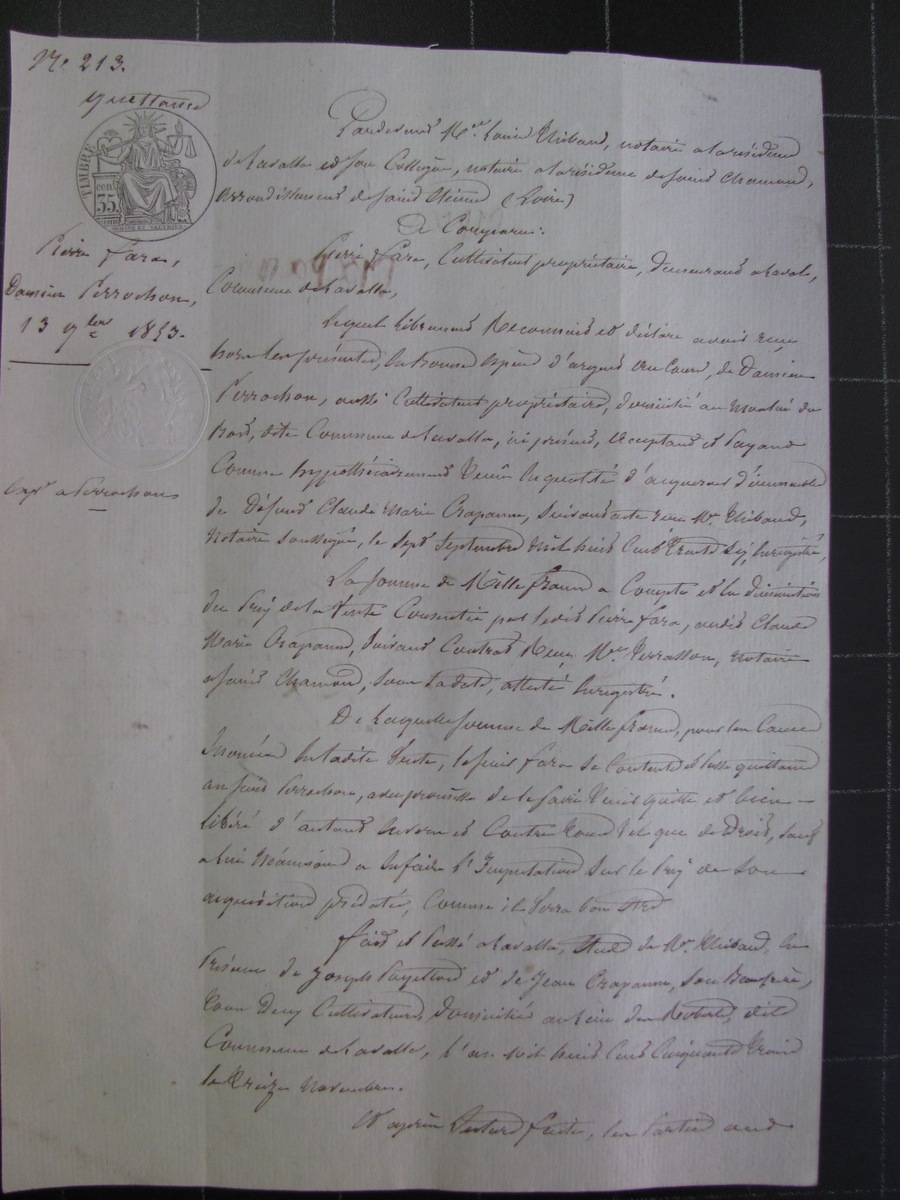 N.° 213.
quittance
TIMBRE
35 cent
Pierre fara,
Damien Perrochon,
13 9bre 1853.
exp. a Perrochon
Pardevant Me Louis Thibaud, notaire a la résidence
de Lavalla et son Collègue, notaire a la résidence de Saint Chamond,
arrondissement de Saint Etienne (Loire)
A Comparu:
Pierre fara, Cultivateur propriétaire, demeurant a Laval,
Commune de Lavalla,
Lequel librement Reconnait et déclare avoir reçu
hors les présentes, en bonnes espèces d'argent au Cours, de Damien
Perrochon, aussi Cultivateur propriétaire, domicilié au
Bost, dite Commune de Lavalla, ici présent, acceptant et payant
Comme hyppothécairement Tenu en qualité d'acquereur d'immeubles
de Défunt Claude Marie Crapanne, suivant acte reçu Me Thibaud,
Notaire Soussigné, le Sept Septembre mil huit Cent trente Six, Enregistré,
La Somme de Mille francs a Compte et en diminution
du Prix de la Vente Consentie par ledit Pierre fara, audit Claude
Marie Crapanne, Suivant Contrat Reçu Me Terrasson, Notaire
a Saint Chamond, Sous Sa date, attesté Enregistré.
De Laquelle Somme de Mille francs, pour les Causes
Enoncées En ladite Vente, le Sieur fara Se Contente et passe quittance
au Sieur Perrochon, avec promesse de le faire Tenir quitte et bien
libéré d'autant Envers et Contre Tous Tel que de Droit, Sauf
a lui Néanmoins a En faire l'Imputation Sur le Prix de Son
acquisition prédatée, Comme il Verra bon Etre
fait et Passé a Lavalla, Etude de Me Thibaud, En
Présence de Joseph Payettard et de Jean Crapanne, Son Beau frère,
tous Deux Cultivateurs, domiciliés au Lieu de dite
Commune de Lavalla, L'an mil huit Cent Cinquante Trois
le Treize Novembre.
Et après Lecture faite, les Parties ont